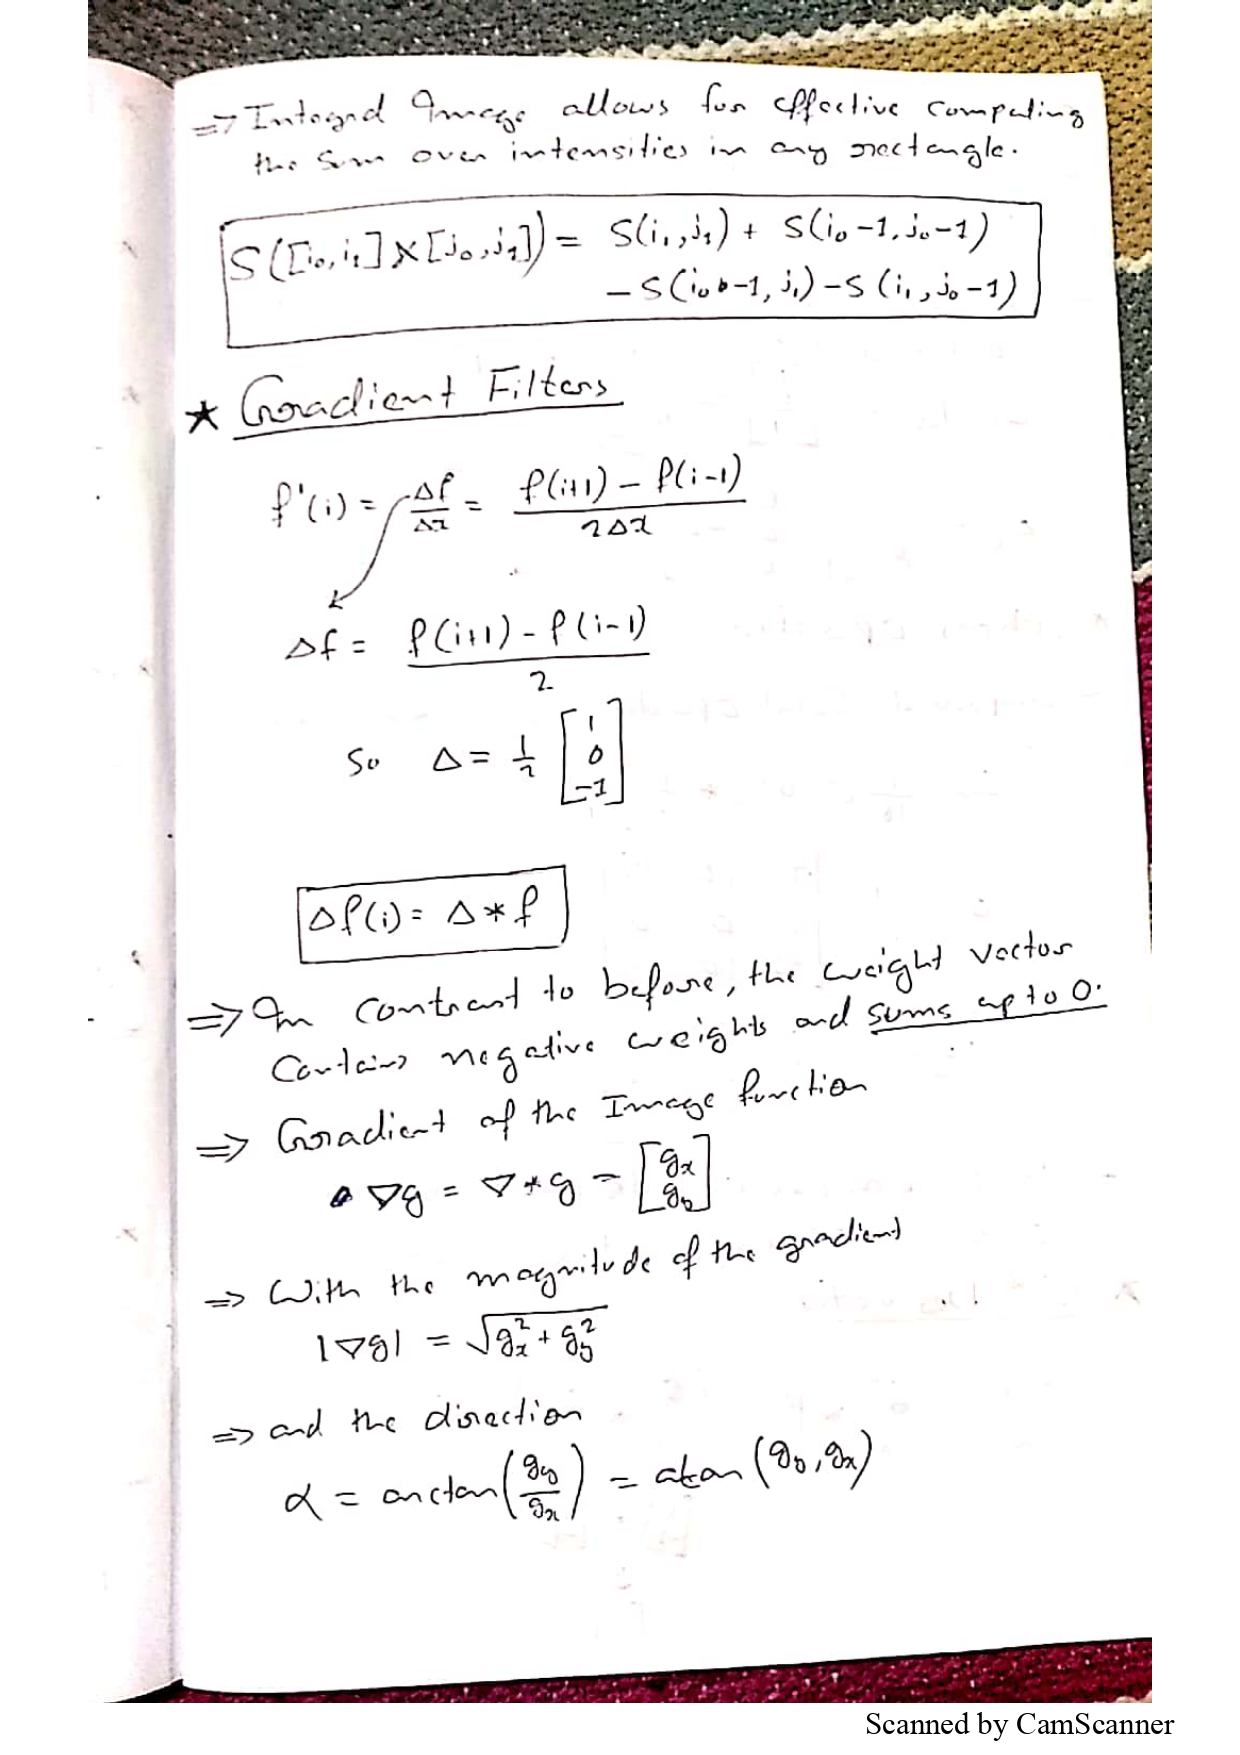 ⇒ Integral Image allows for effective computing
the sum over intensities in any rectangle.
S([i₀,i₁]×[j₀,j₁]) = S(i₁,j₁) + S(i₀-1,j₀-1)
-S(i₀-1,j₁)-S(i₁,j₀-1)
★ Gradient Filters
f'(i) = Δf/Δx = (f(i+1) - f(i-1))/(2Δx)
Δf = (f(i+1) - f(i-1))/2
So Δ = 1/2 [1 0 -1]
Δf(i) = Δ * f
⇒ In contrast to before, the weight vector
Contains negative weights and sums up to 0.
⇒ Gradient of the Image function
∇g = ∇ * g = [gx gy]
⇒ With the magnitude of the gradient
|∇g| = √(gx² + gy²)
⇒ and the direction
α = arctan(gy/gx) = atan(gy, gx)
Scanned by CamScanner